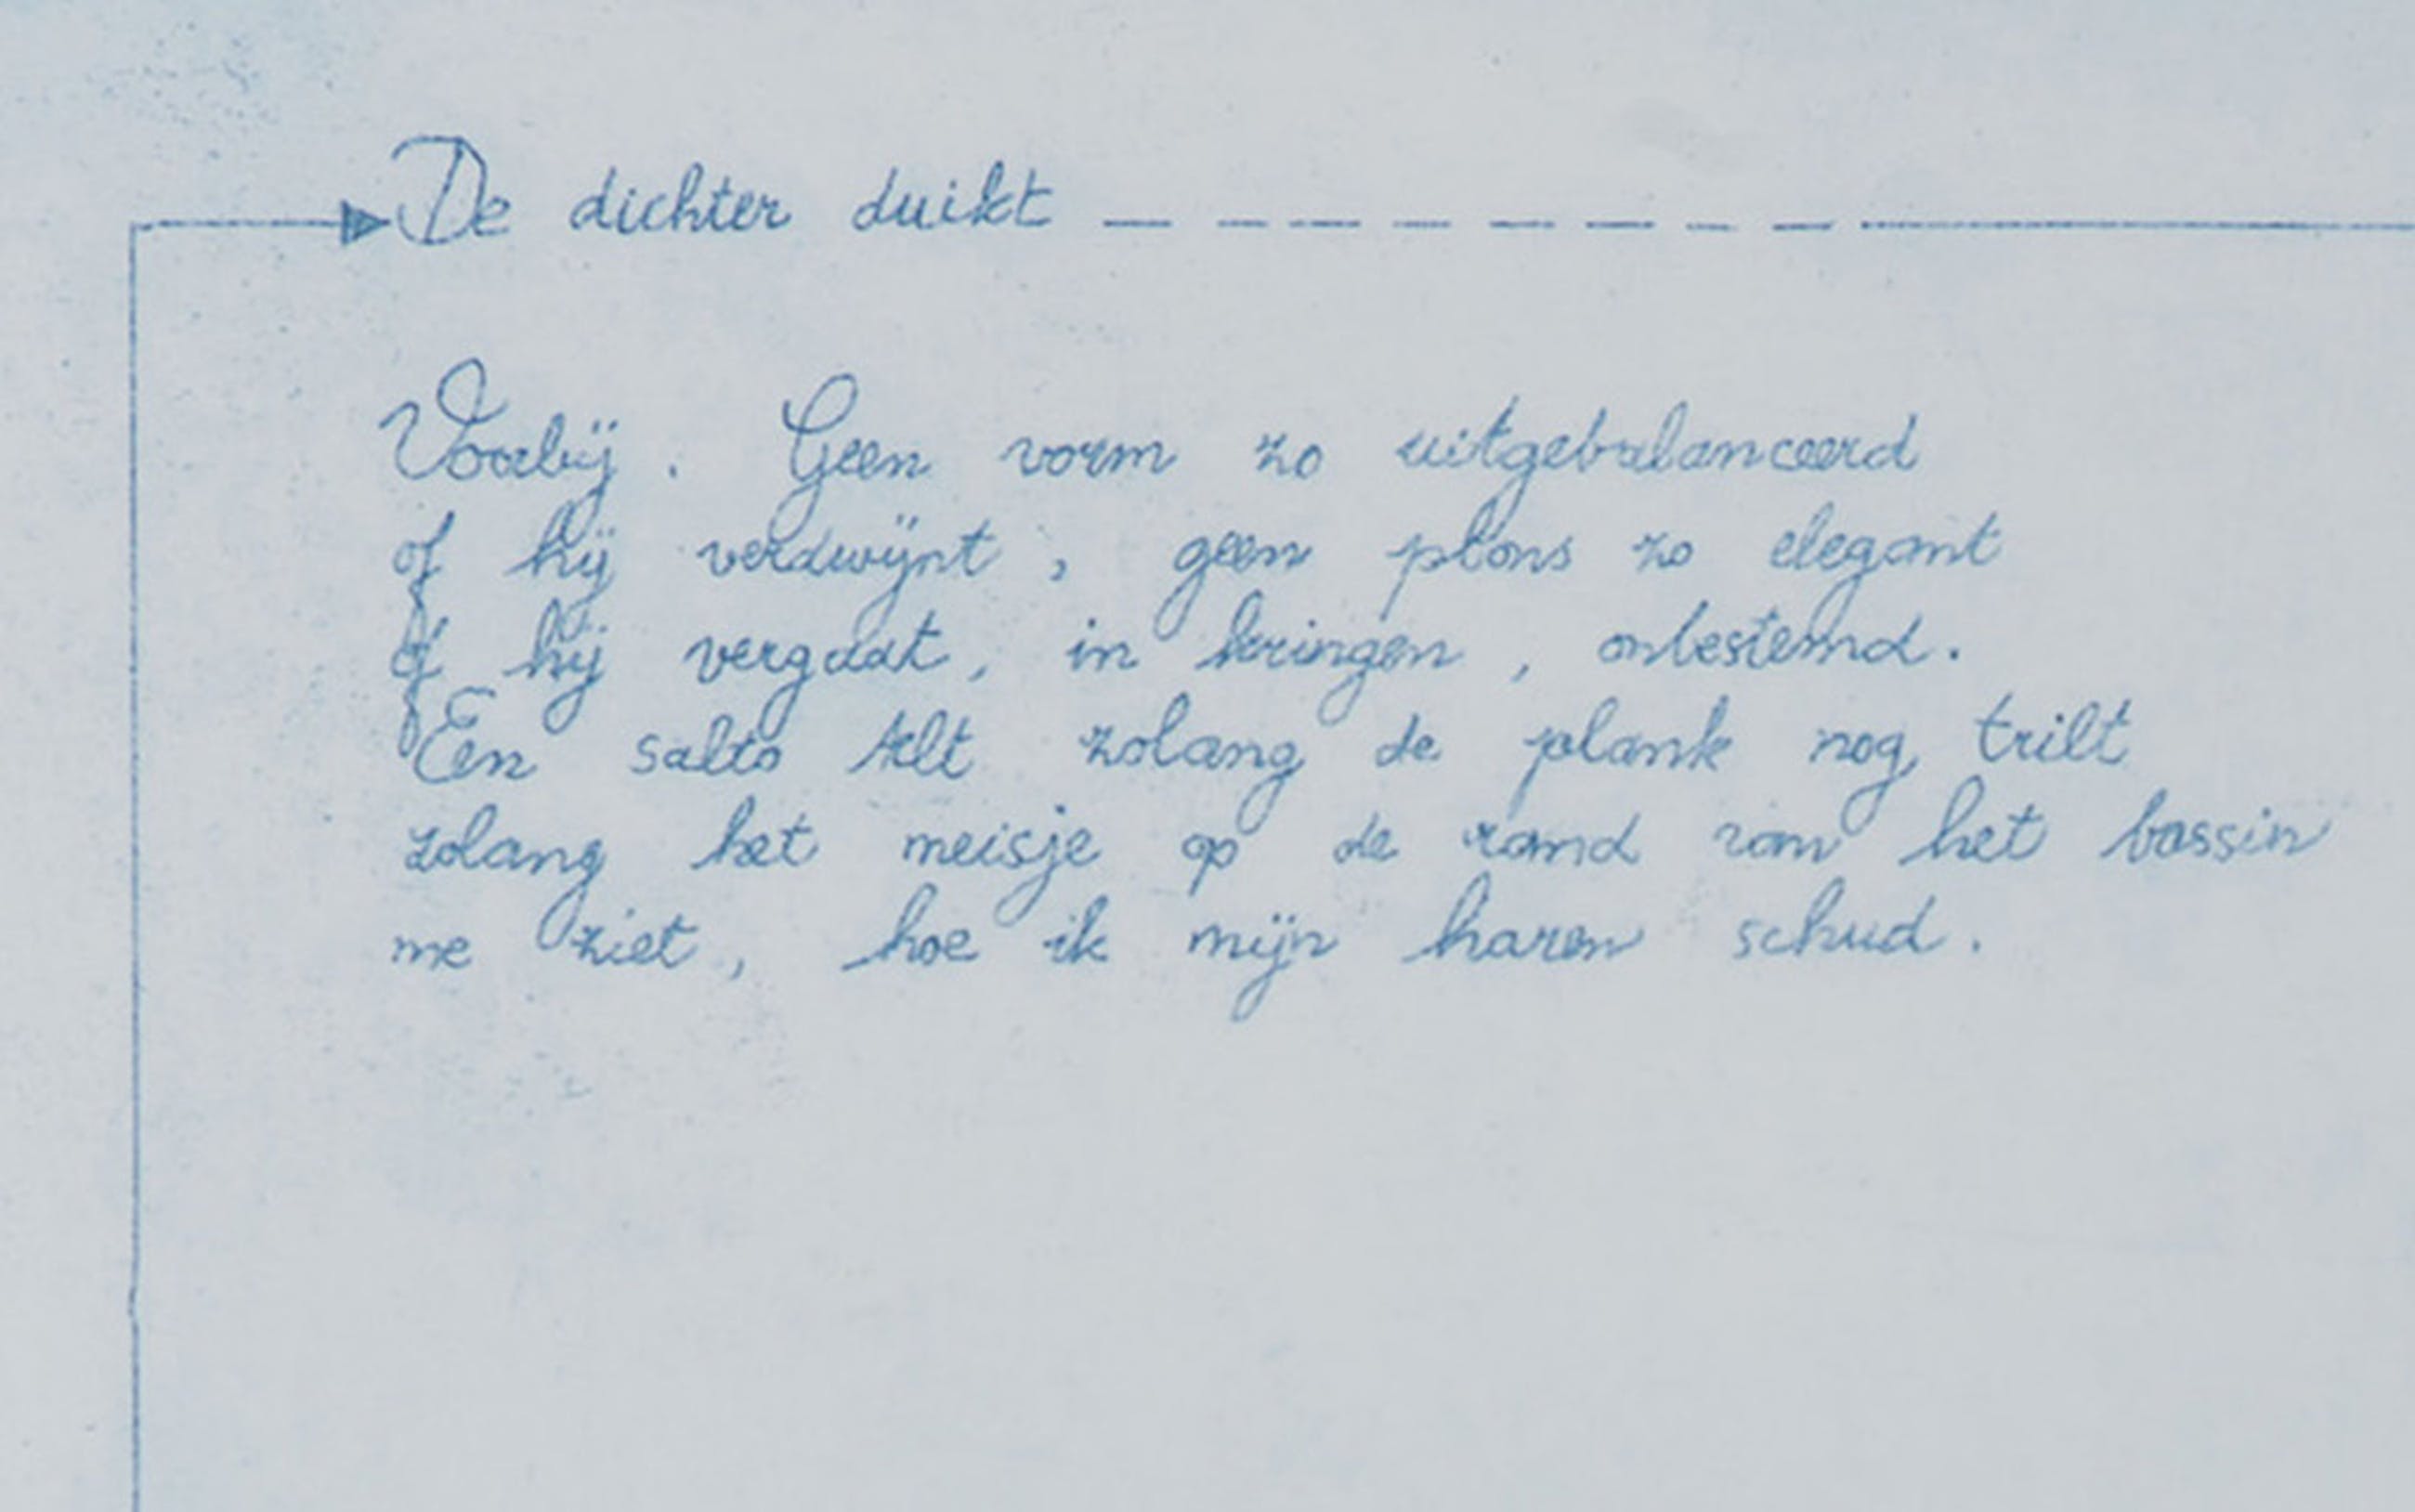 De dichter duikt
Voorbij. Geen vorm zo uitgebalanceerd
of hij verdwijnt, geen plons zo elegant
of hij vergaat, in kringen, onbestemd.
Een salto telt zolang de plank nog trilt
zolang het meisje op de rand van het bassin
me ziet, hoe ik mijn haren schud.